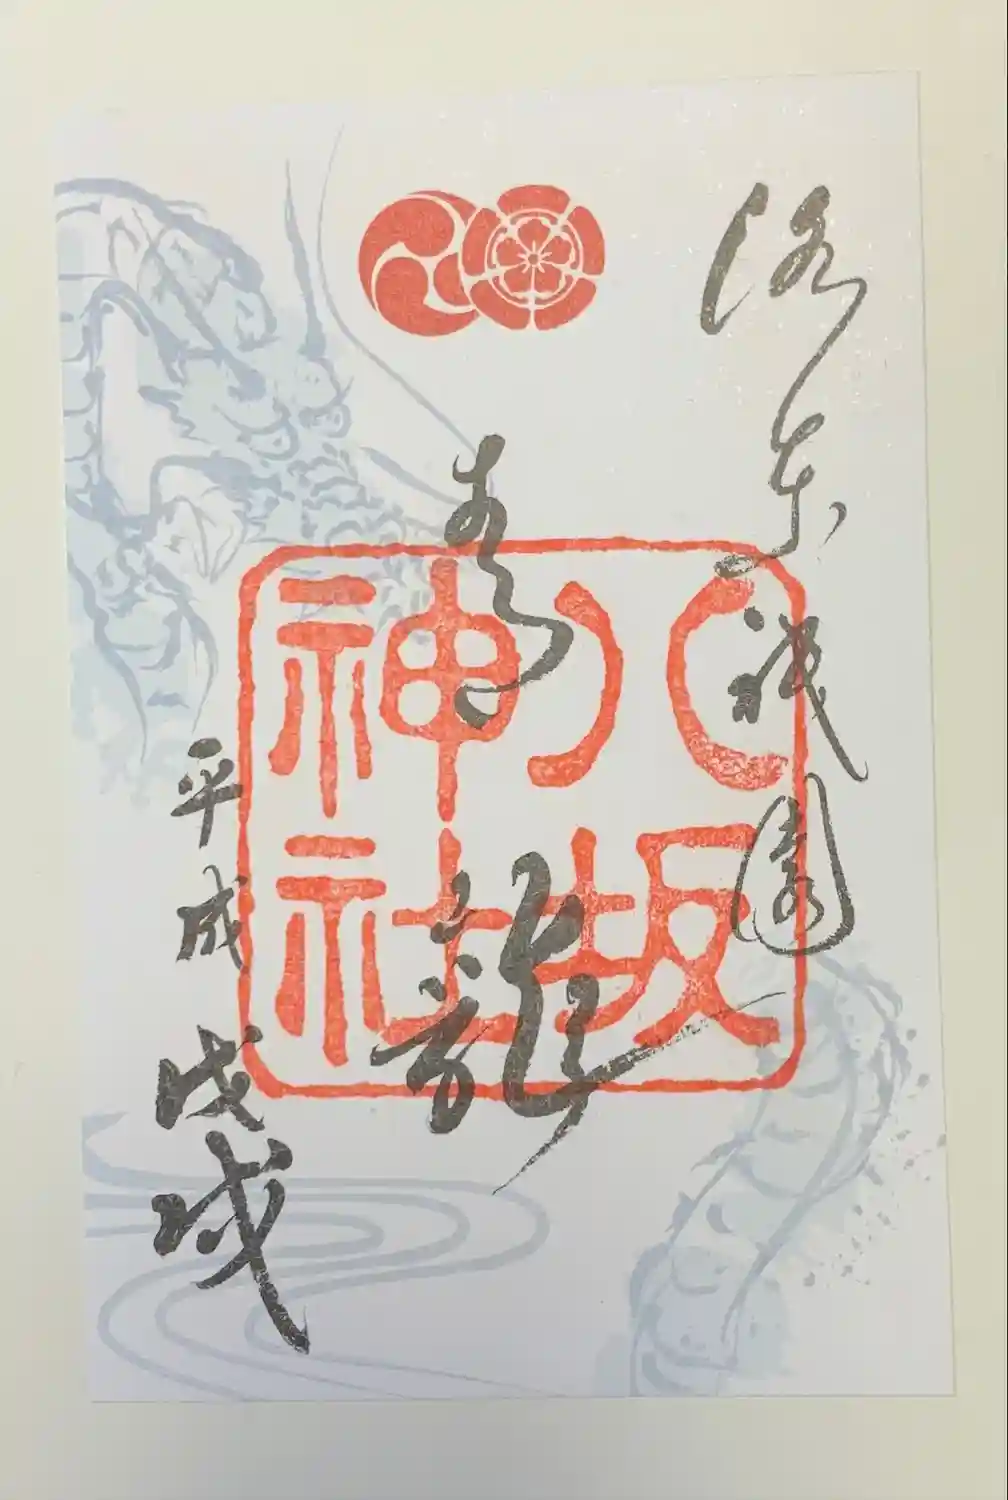 洛東
祇園
青龍
八坂
神社
平成
戊戌